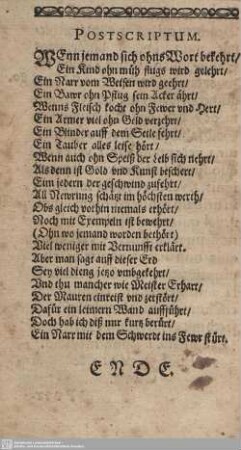 POSTSCRIPTUM.
WEnn jemand sich ohns Wort bekehrt/
Ein Kind ohn müh flugs wird gelehrt/
Ein Narr vom Weisen wird geehrt/
Ein Bawr ohn Pflug sein Acker ährt/
Wenns Fleisch kocht ohn Fewer vnd Hert/
Ein Armer viel ohn Geld verzehrt/
Ein Blinder auff dem Seile fehrt/
Ein Tauber alles leise hört/
Wenn auch ohn Speiß der Leib sich nehrt/
Als denn ist Gold vnd Kunst beschert/
Eim jedern der geschwind zufehrt/
All Newrung schätzt im höchsten werth/
Obs gleich vorhin niemals erhört/
Noch mit Exempeln ist bewehrt/
(Ohn wo jemand worden bethört)
Viel weniger mit Vernunfft erklärt.
Aber man sagt auff dieser Erd
Sey viel dieng jetzo vmbgekehrt/
Vnd thu mancher wie Meister Erhart/
Der Mauren einreist vnd zerstört/
Dafür ein leimern Wand auffführt/
Doch hab ich diß nur kurtz berürt/
Ein Narr mit dem Schwerdt ins Fewr stürt.
ENDE.